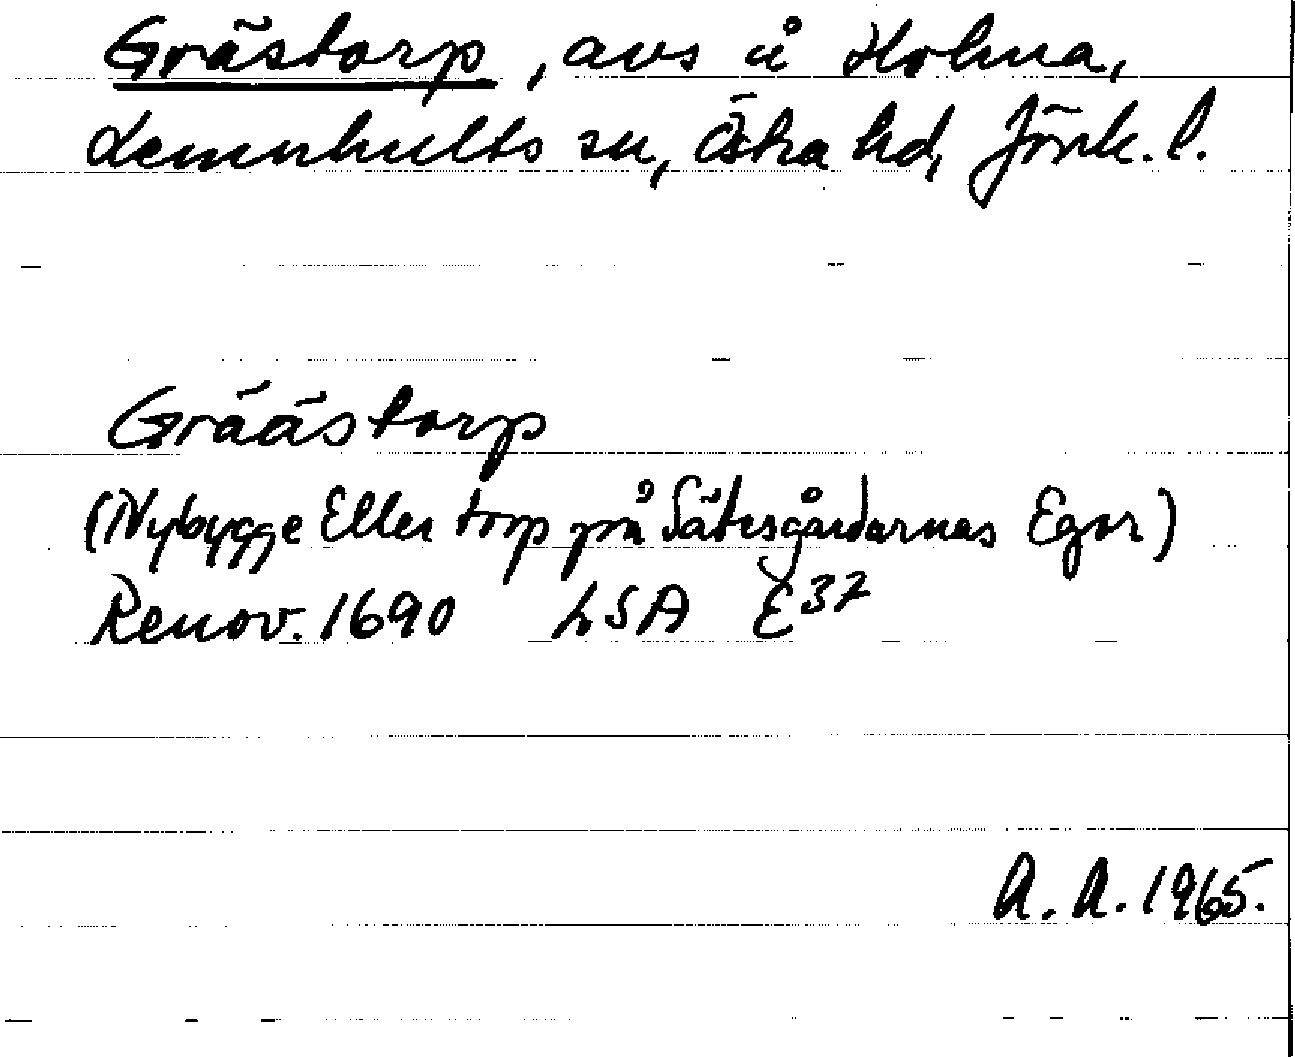 Grästorp, avs å Holma,
Lemnhults sn, Östra hd, Jönk. l.
Gräästorp
(Nybygge Eller torp på Sätesgårdarnas Egor)
Renov. 1690 LSA E37
A. A. 1965.